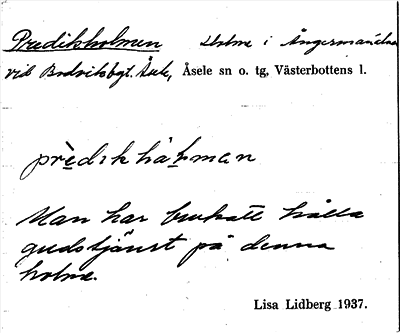 Predikholmen Holme i Ångermanälven
vid Bodviksbgt. Åsele, Åsele sn o. tg, Västerbottens l.
prèdikhåḷman
Man har brukat hålla
gudstjänst på denna
holme.
Lisa Lidberg 1937.